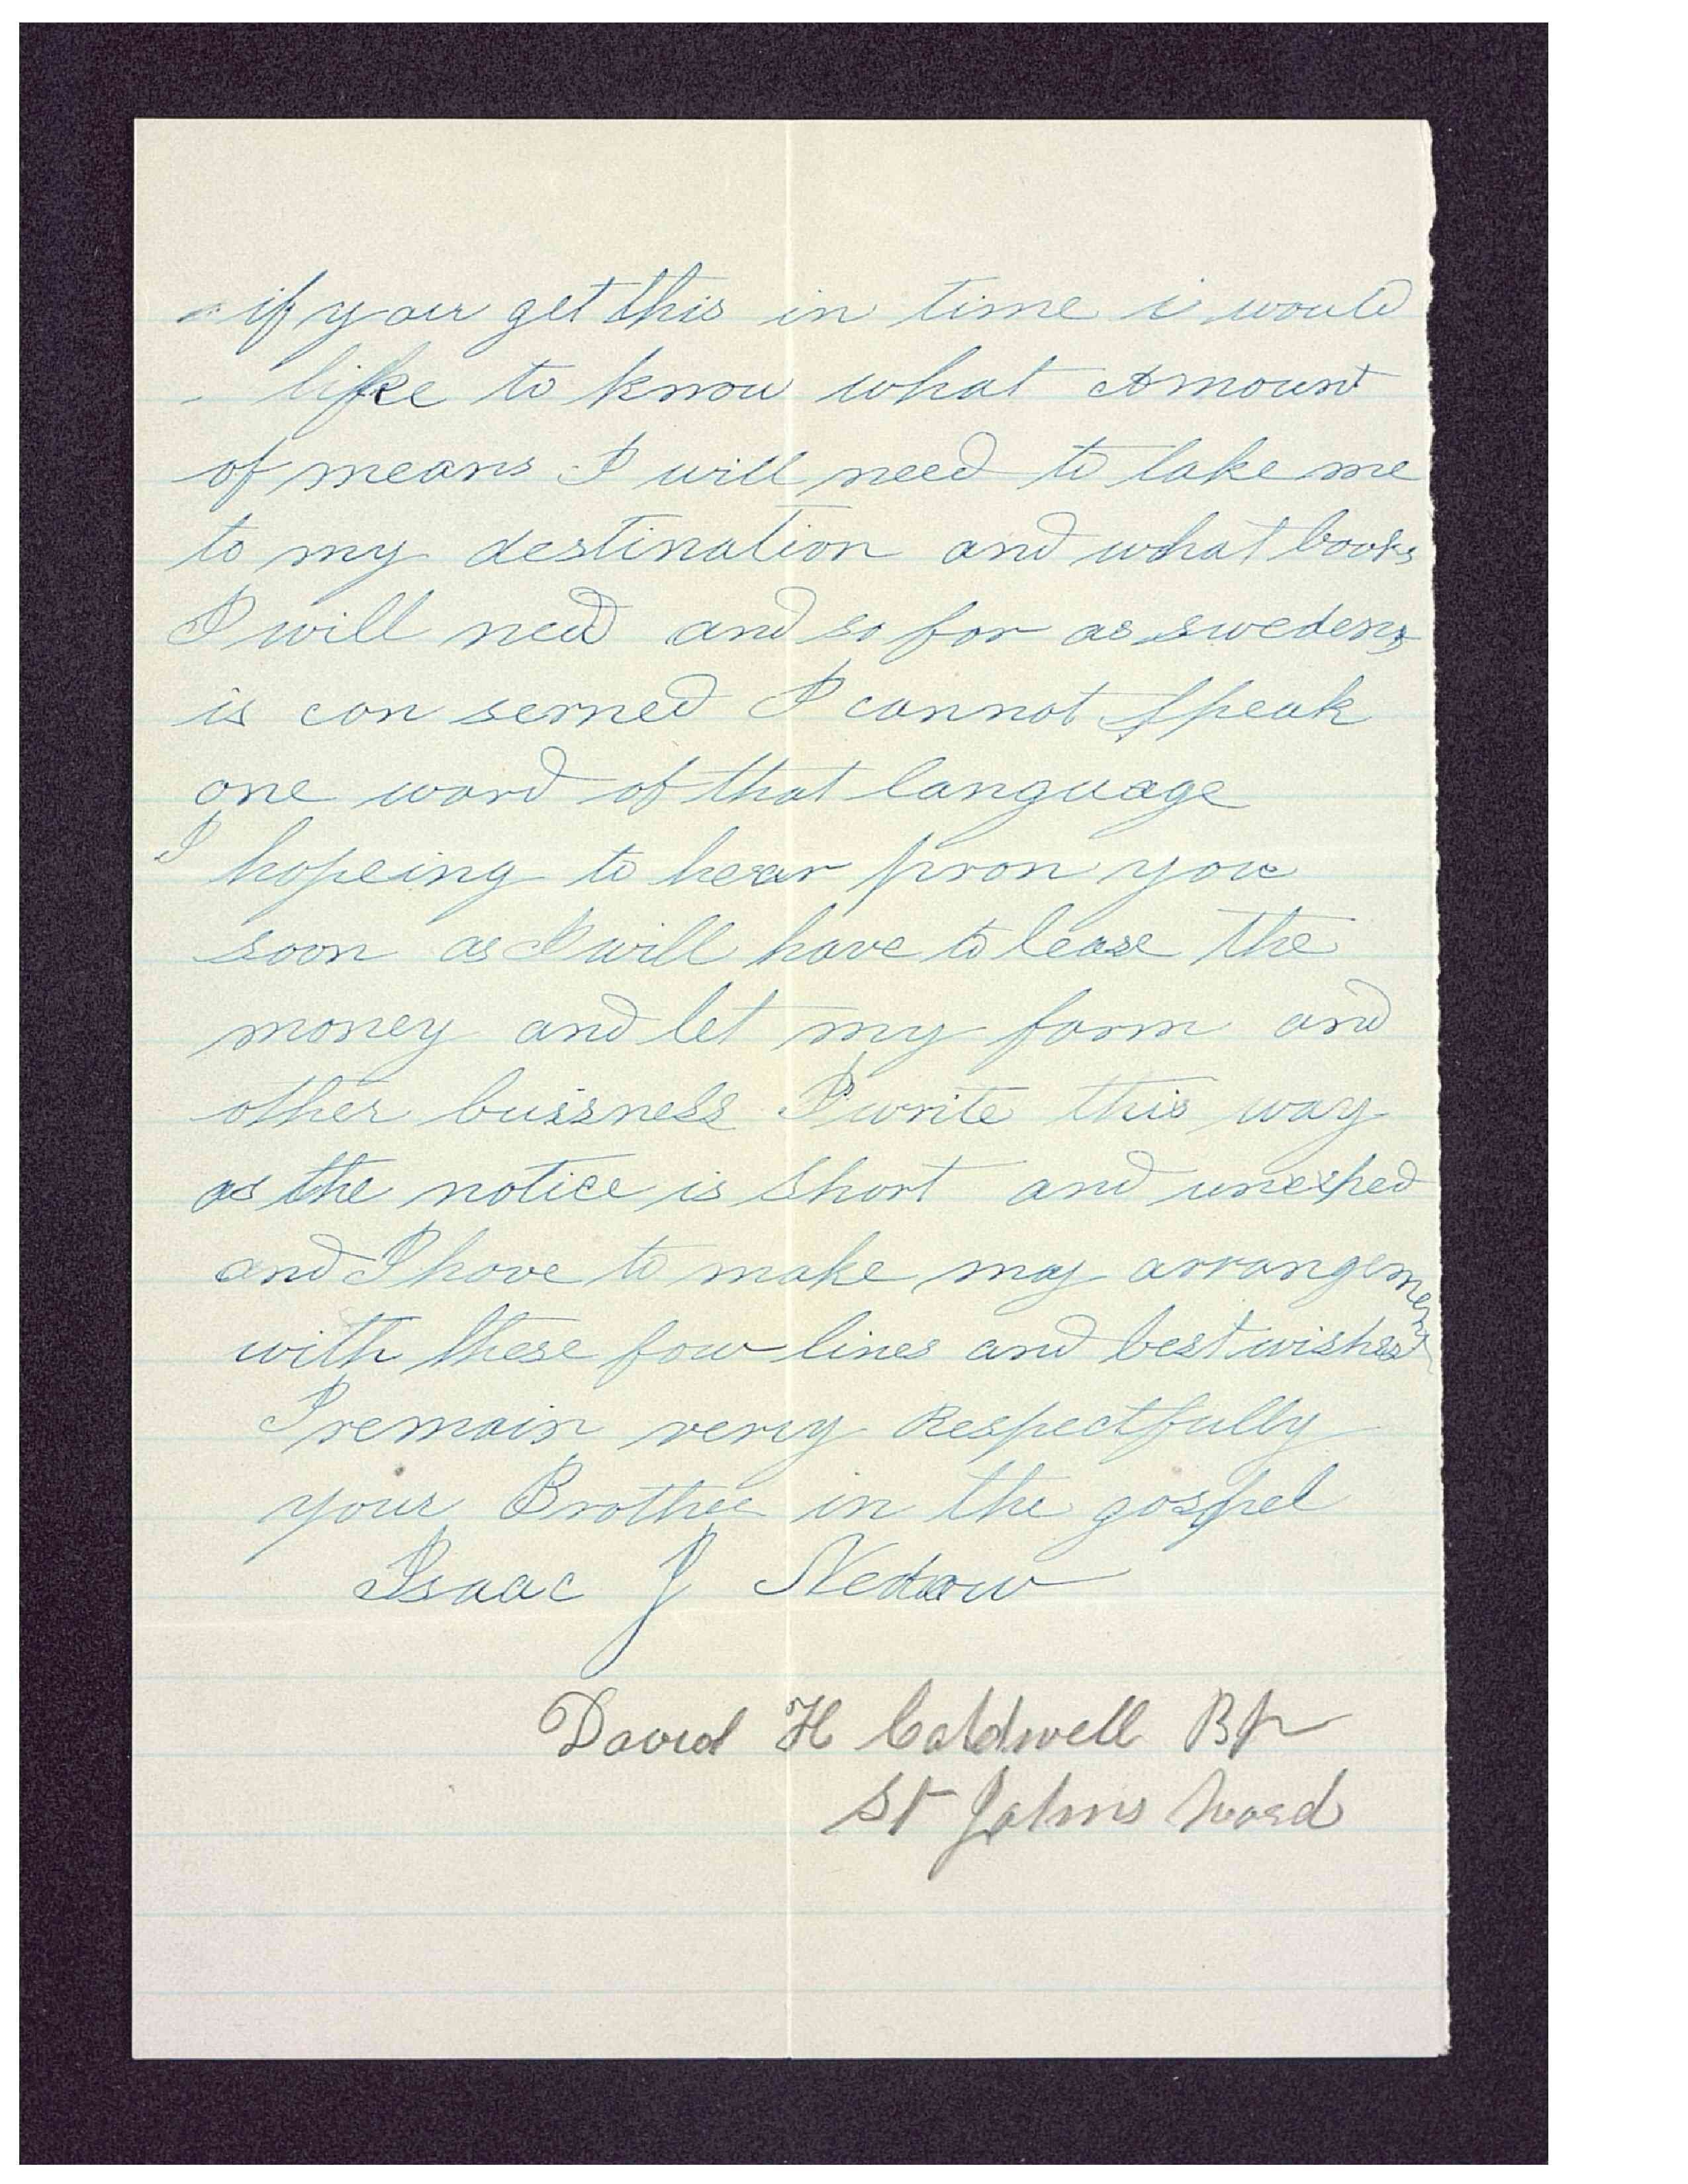 if your get this in time i would
like to know what Amount
of means I will need to take me
to my destination and what books
I will need and so far as swedens
is con serned I cannot speak
one word of that language
I hopeing to hear fron you
soon as I will have to lease the
money and let my farm and
other buissness I write this way
as the notice is short and unexped
and I have to make my arrangements
with these few lines and best wishes
I remain very Respectfully
your Brother in the gospel
Isaac J
David H Caldwell Bp
St Johns Ward